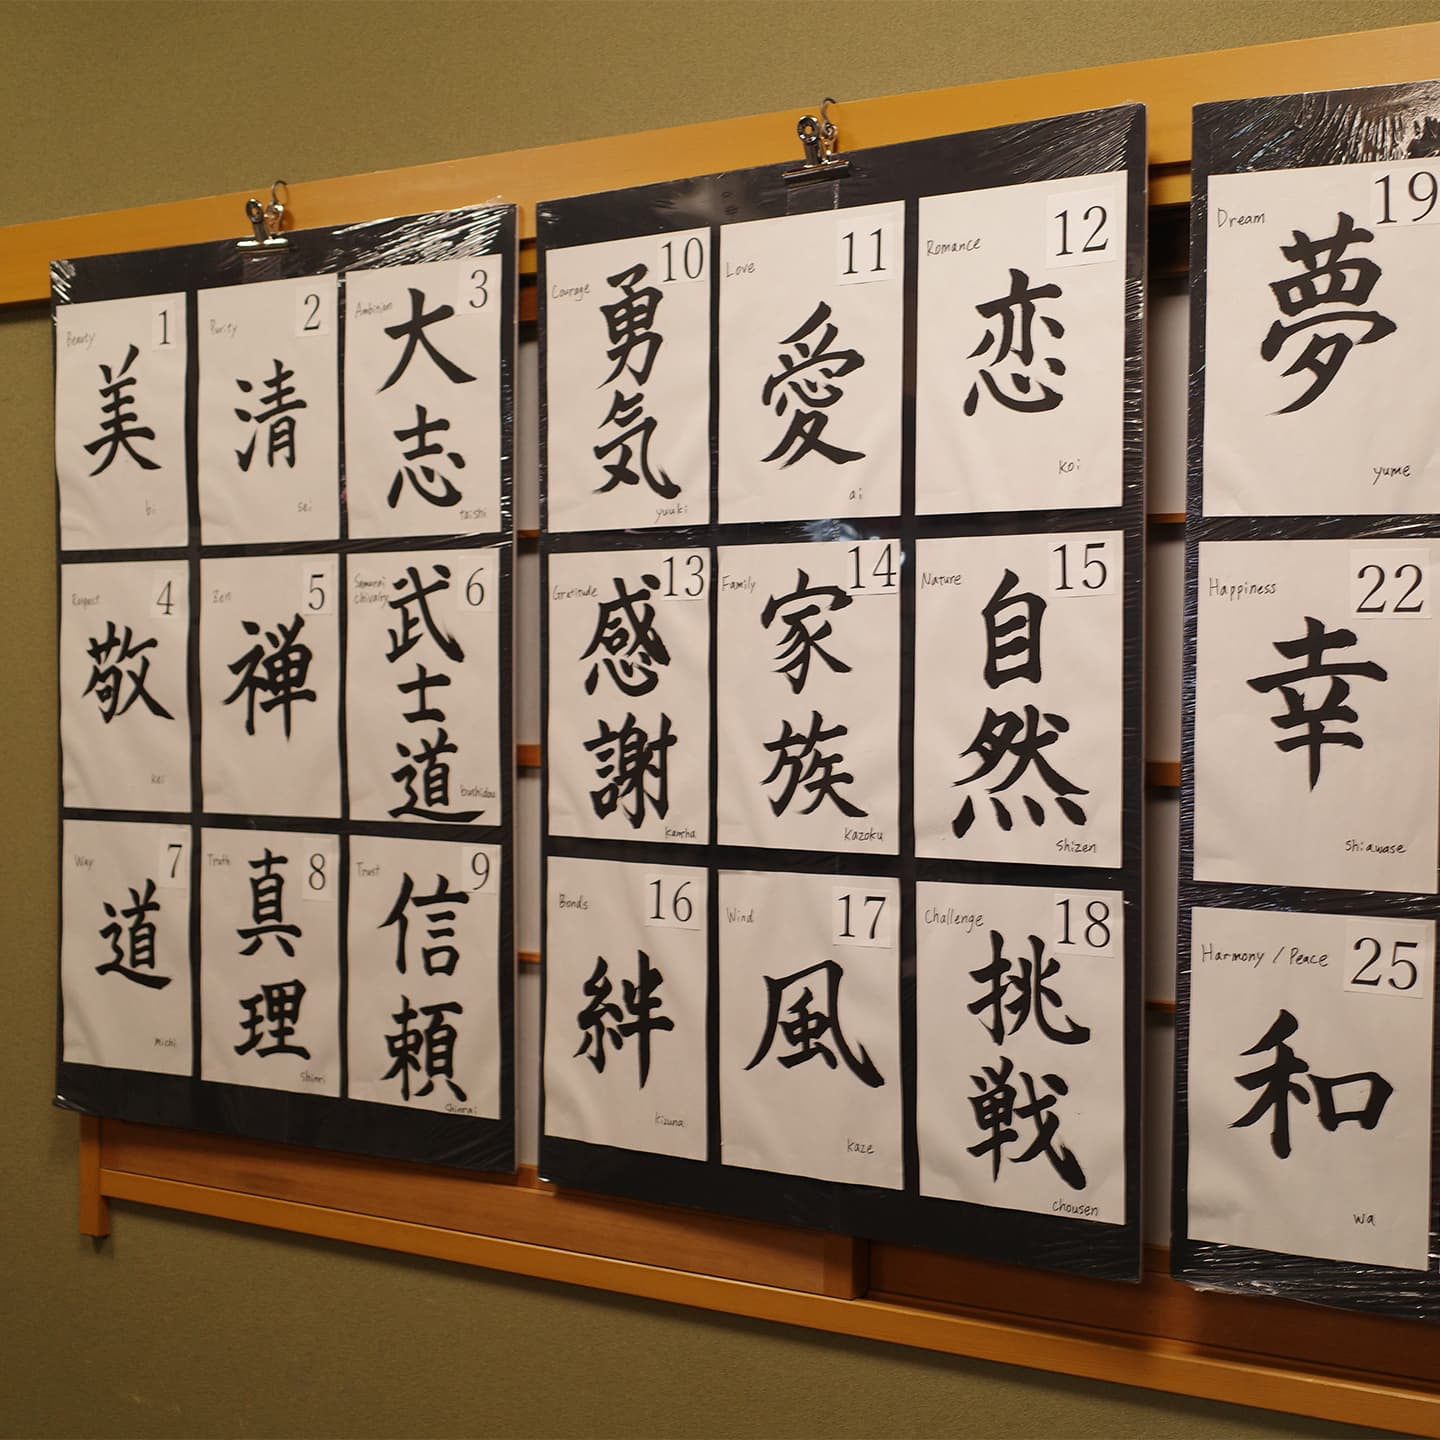 Beauty
1
美
bi
Purity
2
清
sei
Ambition
3
大
志
taishi
Respect
4
敬
kei
Zen
5
禅
Samurai
chivalry
6
武
士
道
bushidou
Way
7
道
michi
Truth
8
真
理
shinri
Trust
9
信
頼
shinrai
Courage
10
勇
気
yuuki
Love
11
愛
ai
Romance
12
恋
koi
Gratitude
13
感
謝
Family
14
家
族
kazoku
Nature
15
自
然
shizen
Bonds
16
絆
kizuna
Wind
17
風
kaze
Challenge
18
挑
戦
chousen
Dream
19
夢
yume
Happiness
22
幸
shiawase
Harmony / Peace
25
和
wa